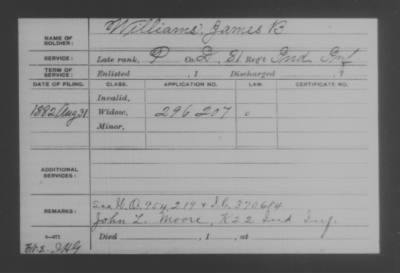 NAME OF SOLDIER: Williams, James B
SERVICE: Late rank, P Co. D, 81 Reg't Ind Inf
TERM OF SERVICE: Enlisted , 1 Discharged , 1
DATE OF FILING. CLASS. APPLICATION NO. LAW. CERTIFICATE NO.
Invalid,
1882 Aug 31 Widow, 296207
Minor,
ADDITIONAL SERVICES:
REMARKS: See W.O. 904,219 + I.C. 370614
John L. Moore, K 22 Ind Inf.
Died , 1 , at